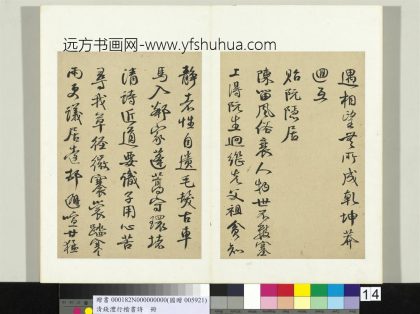 远方书画网-www.yfshuhua.com
遇相望無所成乾坤莽
回互
貽阮隱居
陳留風俗衰人物世不數塞
上得阮生迥繼先父祖貧知
靜者性自益毛髮古車
馬入鄰家蓬蒿翳環堵
清詩近道要識子用心苦
尋我草徑微褰裳踏寒
雨更議居遠村避喧甘猛
14
贈書 000182N000000000(國贈 005921)
清錢灃行楷書詩 冊